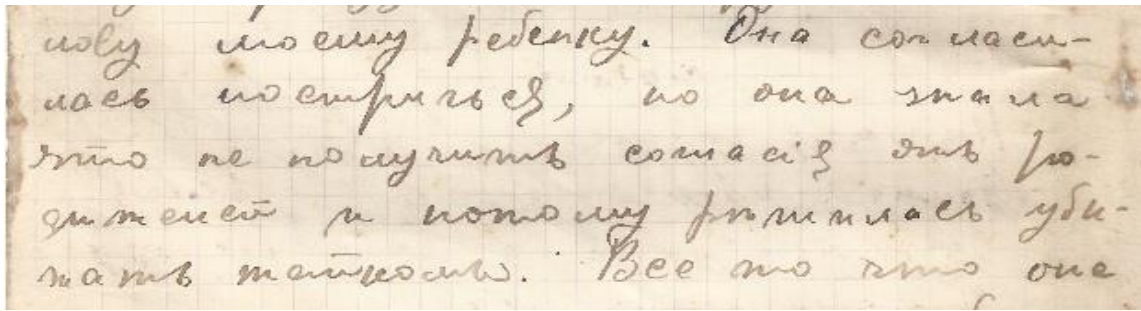 лову моему ребенку. Она согласи-
лась постричься, но она знала
что не получитъ согласiя отъ ро-
дителей и потому рѣшилась убѣ-
жать тайкомъ. Все то что она